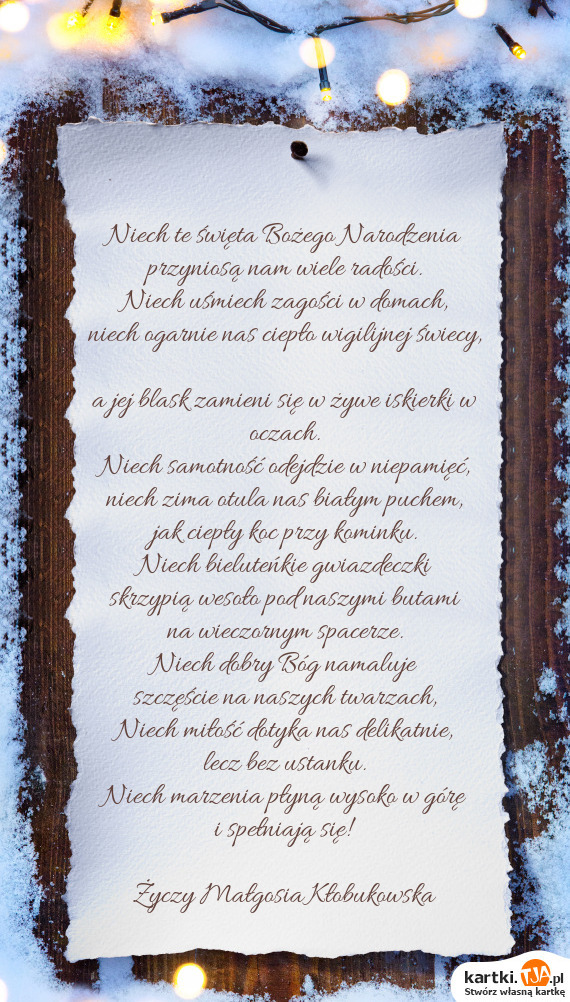 Niech te święta Bożego Narodzenia
przyniosą nam wiele radości.
Niech uśmiech zagości w domach,
niech ogarnie nas ciepło wigilijnej świecy,
a jej blask zamieni się w żywe iskierki w
oczach.
Niech samotność odejdzie w niepamięć,
niech zima otula nas białym puchem,
jak ciepły koc przy kominku.
Niech bieluteńkie gwiazdeczki
skrzypią wesoło pod naszymi butami
na wieczornym spacerze.
Niech dobry Bóg namaluje
szczęście na naszych twarzach,
Niech miłość dotyka nas delikatnie,
lecz bez ustanku.
Niech marzenia płyną wysoko w górę
i spełniają się!
Życzy Małgosia Kłobukowska
kartki.TJA.pl
Stwórz własną kartkę